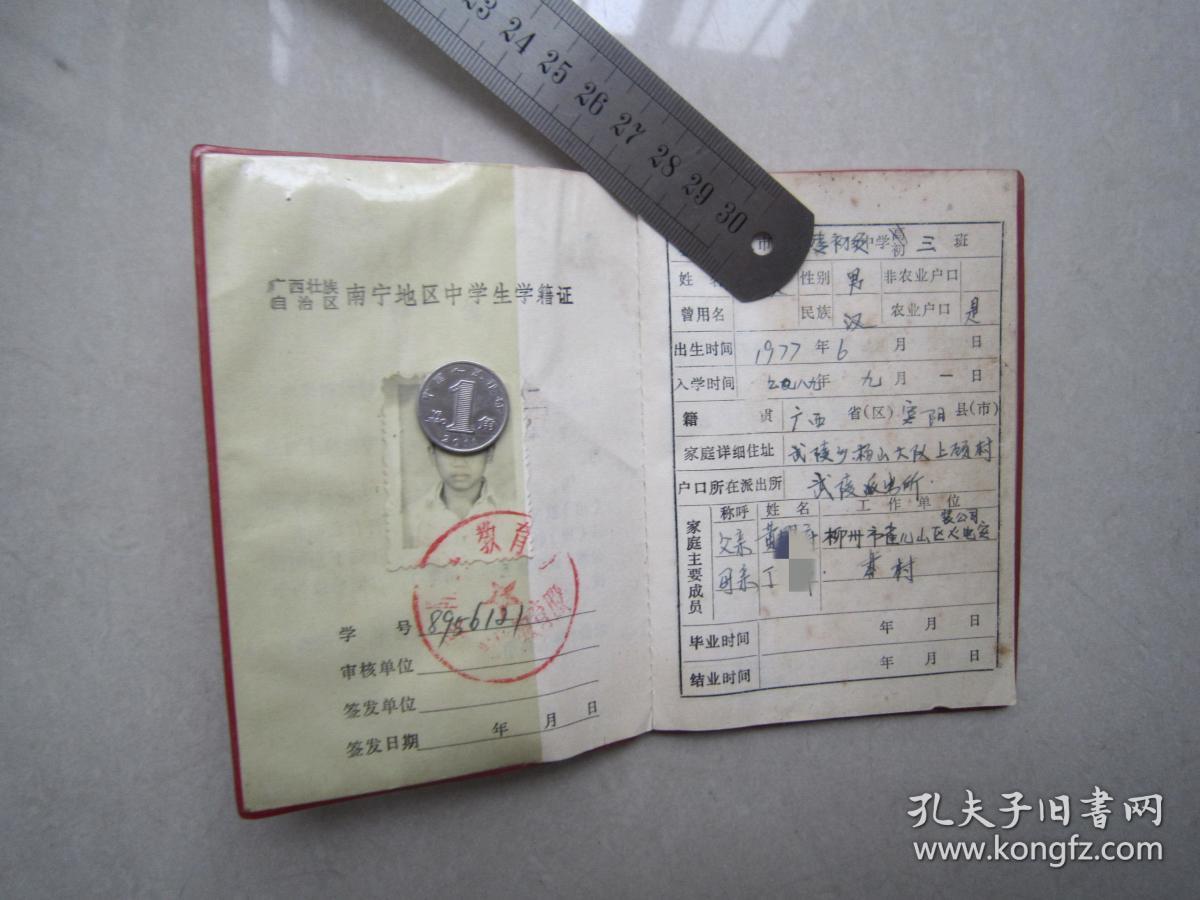 23 24 25 26 27 28 29 30
广西壮族
自治区 南宁地区中学生学籍证
1
角
教育
学 号 8956121
审核单位
签发单位
签发日期 年 月 日
市 初级中学 初 三 班
姓 性别 男 非农业户口
曾用名 民族 汉 农业户口 是
出生时间 1977 年 6 月 日
入学时间 一九八九年 九 月 一 日
籍 贯 广西 省(区) 宾阳 县(市)
家庭详细住址 武陵乡 山大队上顾村
户口所在派出所 武陵派出所.
家庭主要成员 称呼 姓名 工作单位
父亲 黄 柳州市雀儿山区火电安装公司
母亲 丁 . 本村
毕业时间 年 月 日
结业时间 年 月 日
孔夫子旧书网
www.kongfz.com